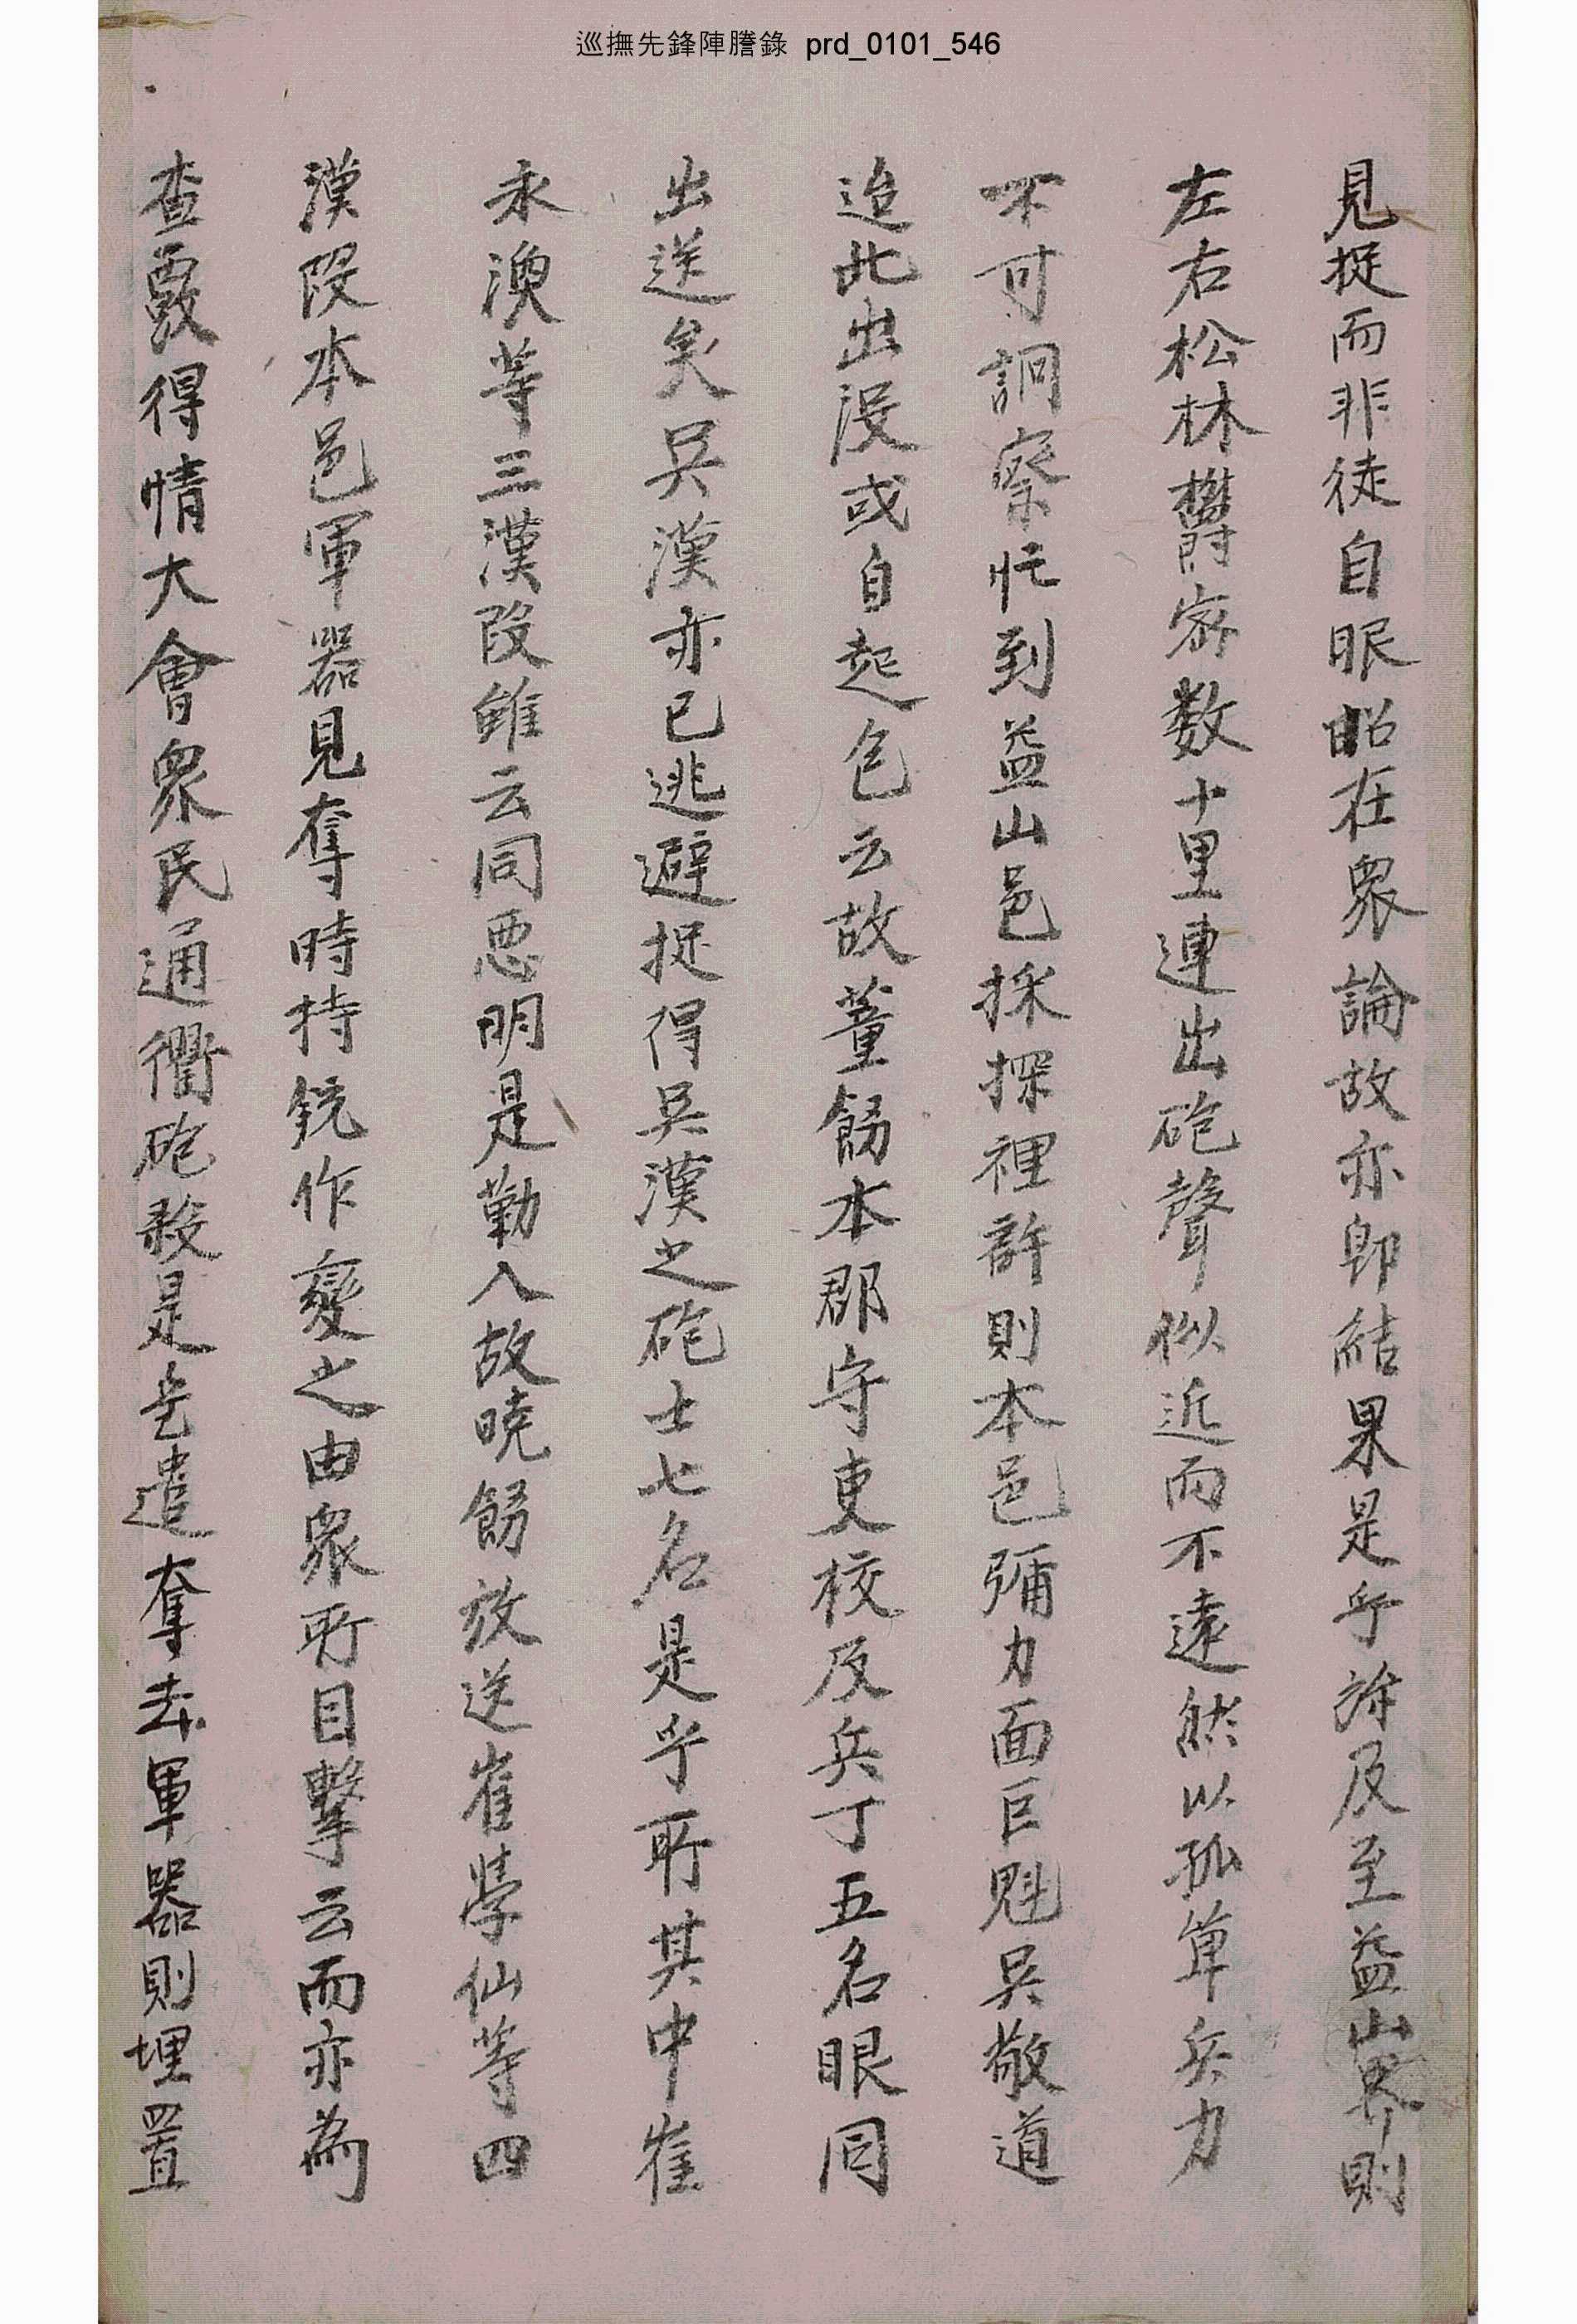 巡撫先鋒陣謄錄 prd_0101_546
見捉而非徒自眼昭在眾論故亦卽結果是乎旀及至益山界則
左右松林欝密数十里連出砲聲似近而不遠然以孤単兵力
不可詗察忙到益山邑採探裡許則本邑彌力面巨魁吳敬道
迨此出沒或自起包云故董飭本郡守吏校及兵丁五名眼同
出送矣吳漢亦已逃避捉得吳漢之砲士七名是乎所其中崔
永渙等三漢段雖云同惡明是勒入故曉飭放送崔學仙等四
漢段本邑軍器見奪時持銃作變之由眾所目擊云而亦為
查覈得情大會眾民通衢砲殺是乎遣奪去軍器則埋置